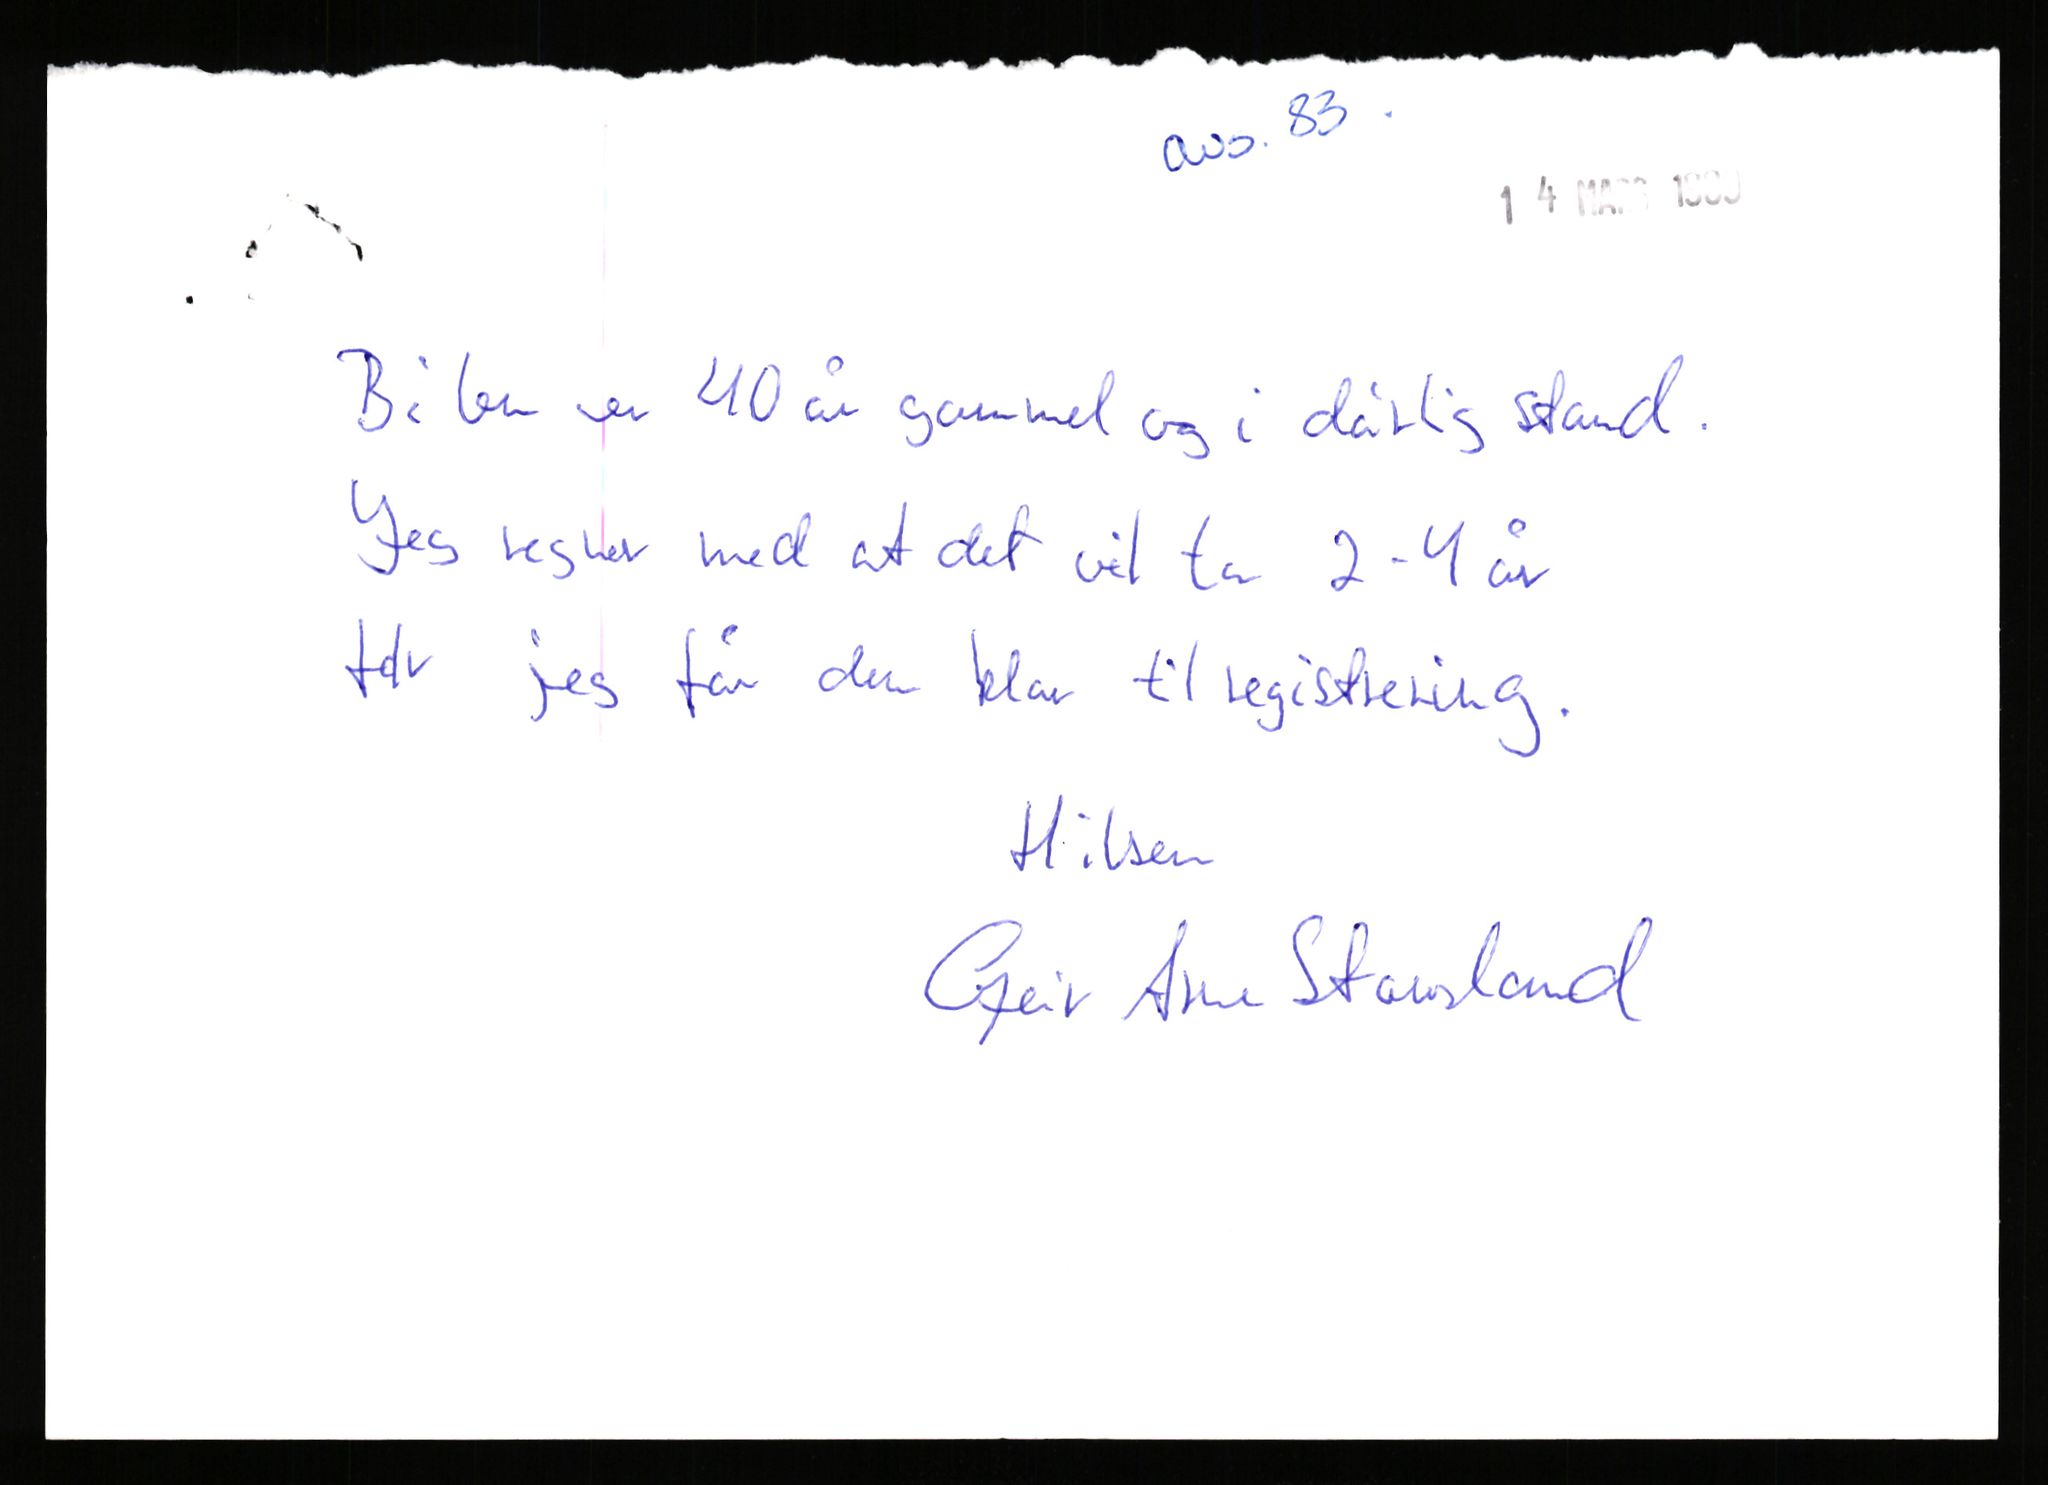 avs. 83.
14 MARS
Bilen er 40 år gammel og i dårlig stand.
Jeg regner med at det vil ta 2-4 år
før jeg får den klar til registrering.
Hilsen
Geir Arne